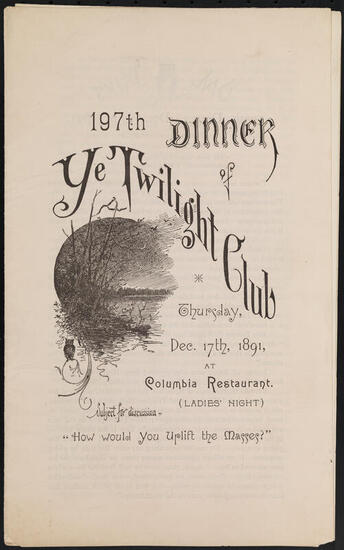 197th DINNER
of
Ye Twilight Club
Thursday,
Dec. 17th, 1891,
AT
Columbia Restaurant.
(LADIES' NIGHT)
Subject for discussion -
"How would You Uplift the Masses?"